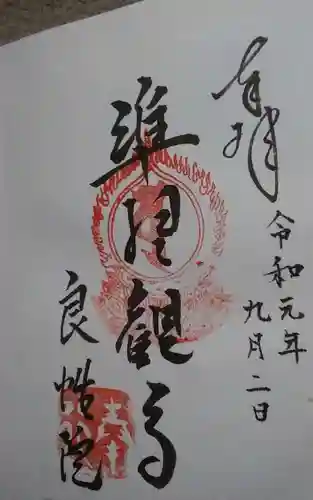 奉拝
令和元年
九月二日
準提観音
良性院